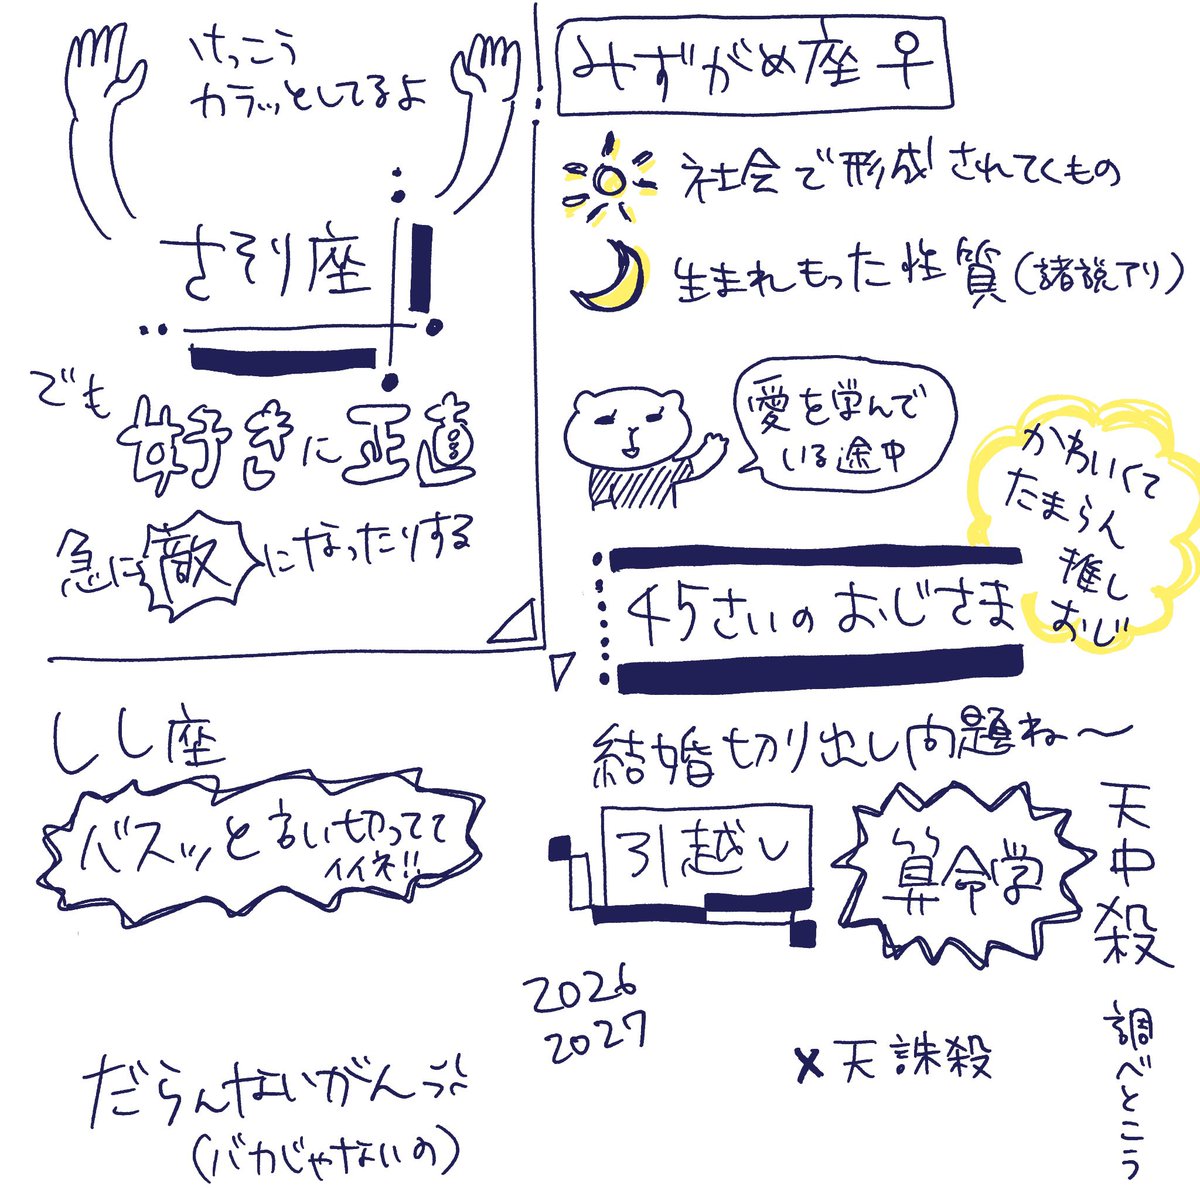 けっこう
カラッとしてるよ
さそり座
でも
好きに正直
急に敵になったりする
みずがめ座♀
社会で形成されてくもの
生まれもった性質(諸説アリ)
愛を学んで
いる途中
かわいくて
たまらん
推し
おじ
45さいのおじさま
しし座
バスッと言い切ってて
イイネ!!
結婚切り出し問題ね〜
引越し
算命学
天中殺
調べとこう
2026
2027
×天誅殺
だらんないがん
(バカじゃないの)